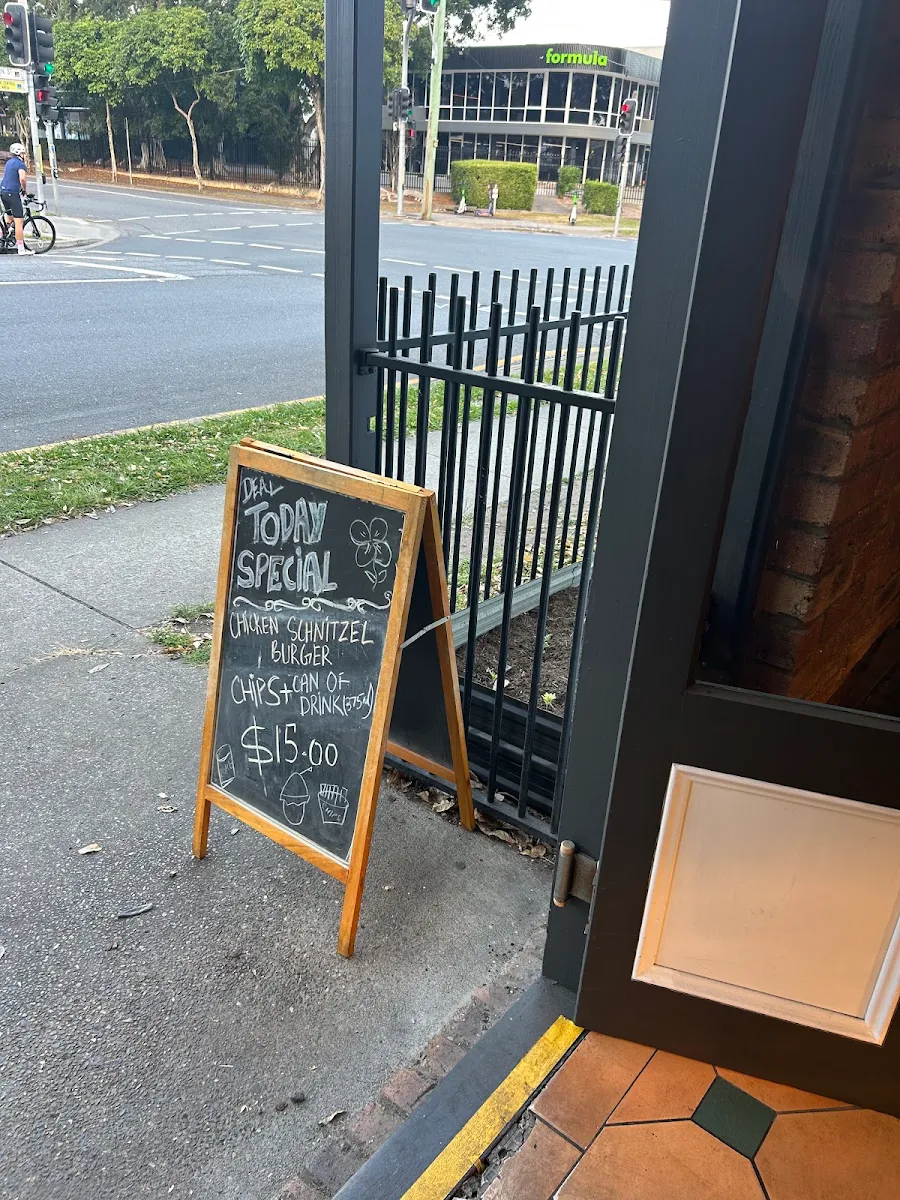 formula
DEAL
TODAY
SPECIAL
CHICKEN SCHNITZEL
BURGER
CHIPS + CAN OF
DRINK (375ml)
$15.00